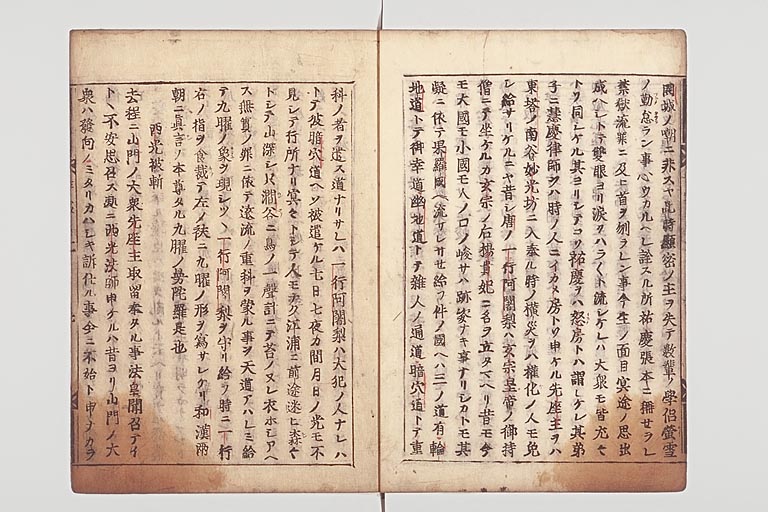 同城ノ嘲ニ非スヤ此時顕密ノ主ヲ失テ数輩ノ学侶螢雪
ノ勤怠ラン事心ウカルヘシ詮スル所祐慶張本ニ称セラレ
禁獄流罪ニ及ヒ首ヲ刎ラレン事今生ノ面目冥途ノ思出
成ヘシトテ雙眼ヨリ涙ヲハラ〱ト流シケレハ大衆モ皆尤モ
トヲ同シケル其ヨリシテコソ祐慶ヲハ怒房トハ謂レケレ其弟
子ニ慧慶律師ヲハ時ノ人ニイカメ房トソ申ケル先座主ヲハ
東塔ノ南谷妙光坊ニ入奉ル時ノ横災ヲハ権化ノ人モ免
レ給サリケルニヤ昔シ唐ノ一行阿闍梨ハ玄宗皇帝ノ御持
僧ニテ坐ケルカ玄宗ノ后楊貴妃ニ名ヲ立タマヘリ昔モ今
モ大國モ小國モ人ノ口ノ峻サハ跡姿ナキ事ナリシカトモ其
疑ニ依テ果羅國ヘ流サレサセ給フ件ノ國ヘハ三ノ道有輪
地道トテ御幸道幽地道トテ雑人ノ通道暗穴道トテ重
科ノ者ヲ遣ス道ナリサレハ一行阿闍梨ハ大犯ノ人ナレハ
トテ彼暗穴道ヘソ被遣ケル七日七夜カ間月日ノ光モ不
見シテ行所ナリ冥々トシテ人モナク江浦ニ前途迷ヒ森々
トシテ山深シ只澗谷ニ鳥ノ一聲計ニテ苔ノヌレ衣ホシアヘ
ス無実ノ罪ニ依テ遠流ノ重科ヲ蒙ル事ヲ天道アハレミ給
テ九曜ノ象ヲ現シツヽ一行阿闍梨ヲ守リ給フ時ニ一行
右ノ指ヲ食裁テ左ノ袂ニ九曜ノ形ヲ寫サレケリ和漢両
朝ニ真言ノ本尊タル九曜ノ曼陀羅是也
西光被斬
去程ニ山門ノ大衆先座主取留奉タル事法皇聞召テイ
トヽ不安思召ス処ニ西光法師申ケルハ昔ヨリ山門ノ大
衆ハ發向ノミタリカハシキ訴仕ル事今ニ不始ト申ナカラ